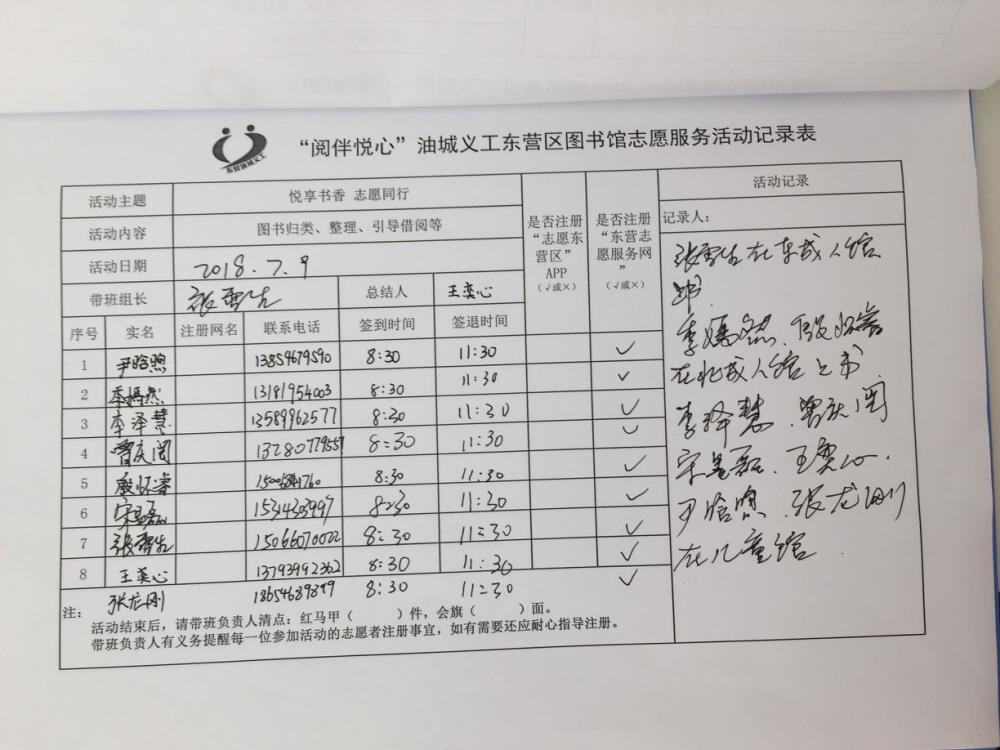 东营油城义工
“阅伴悦心”油城义工东营区图书馆志愿服务活动记录表
活动主题 悦享书香 志愿同行 是否注册“志愿东营区”APP（√或×） 是否注册“东营志愿服务网”（√或×） 活动记录
活动内容 图书归类、整理、引导借阅等 记录人：
活动日期 2018.7.9
带班组长 张 总结人 王奕心
序号 实名 注册网名 联系电话 签到时间 签退时间
1 尹晗煦 13854679590 8:30 11:30 ✓
2 李嫣然 13181954003 8:30 11:30 ✓
3 李泽慧 13589962577 8:30 11:30 ✓
4 曾庆闰 8:30 11:30 ✓
5 殷怀睿 8:30 11:30 ✓
6 8:30 11:30 ✓
7 张 15066070022 8:30 11:30 ✓
8 王奕心 13793992362 8:30 11:30 ✓
张龙刚 8:30 11:30 ✓
注：
活动结束后，请带班负责人清点：红马甲（ ）件，会旗（ ）面。
带班负责人有义务提醒每一位参加活动的志愿者注册事宜，如有需要还应耐心指导注册。
在东成人馆
李嫣然、殷怀睿
在北成人馆
李泽慧、曾庆闰
王奕心、
尹晗煦、张龙刚
在儿童馆